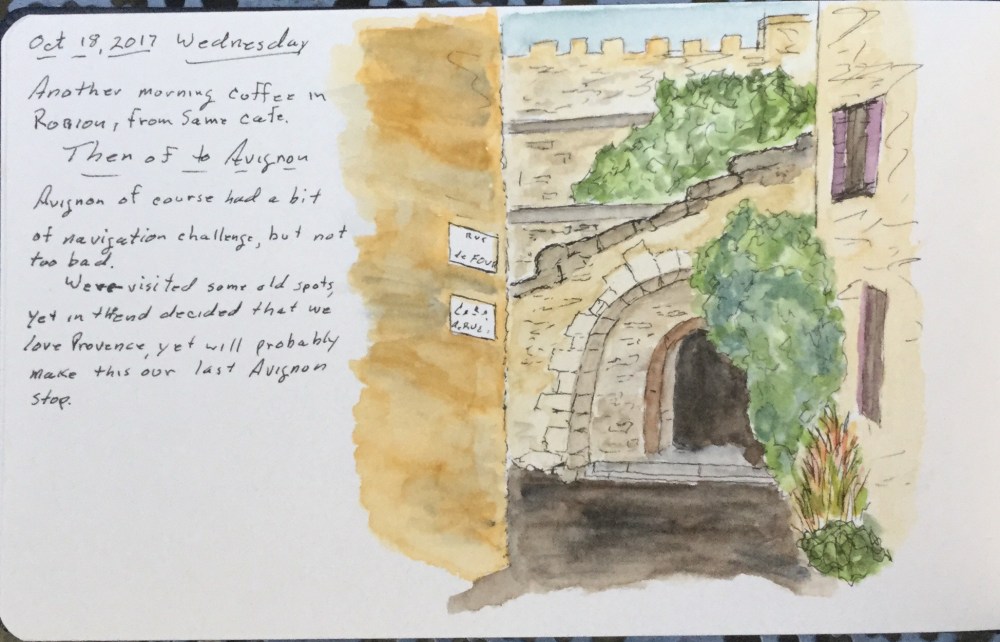 Oct 18, 2017 Wednesday
Another morning coffee in
Robion, from same cafe.
Then of to Avignon
Avignon of course had a bit
of navigation challenge, but not
too bad.
We visited some old spots,
yet in the end decided that we
love Provence, yet will probably
make this our last Avignon
stop.
Rue
de Four